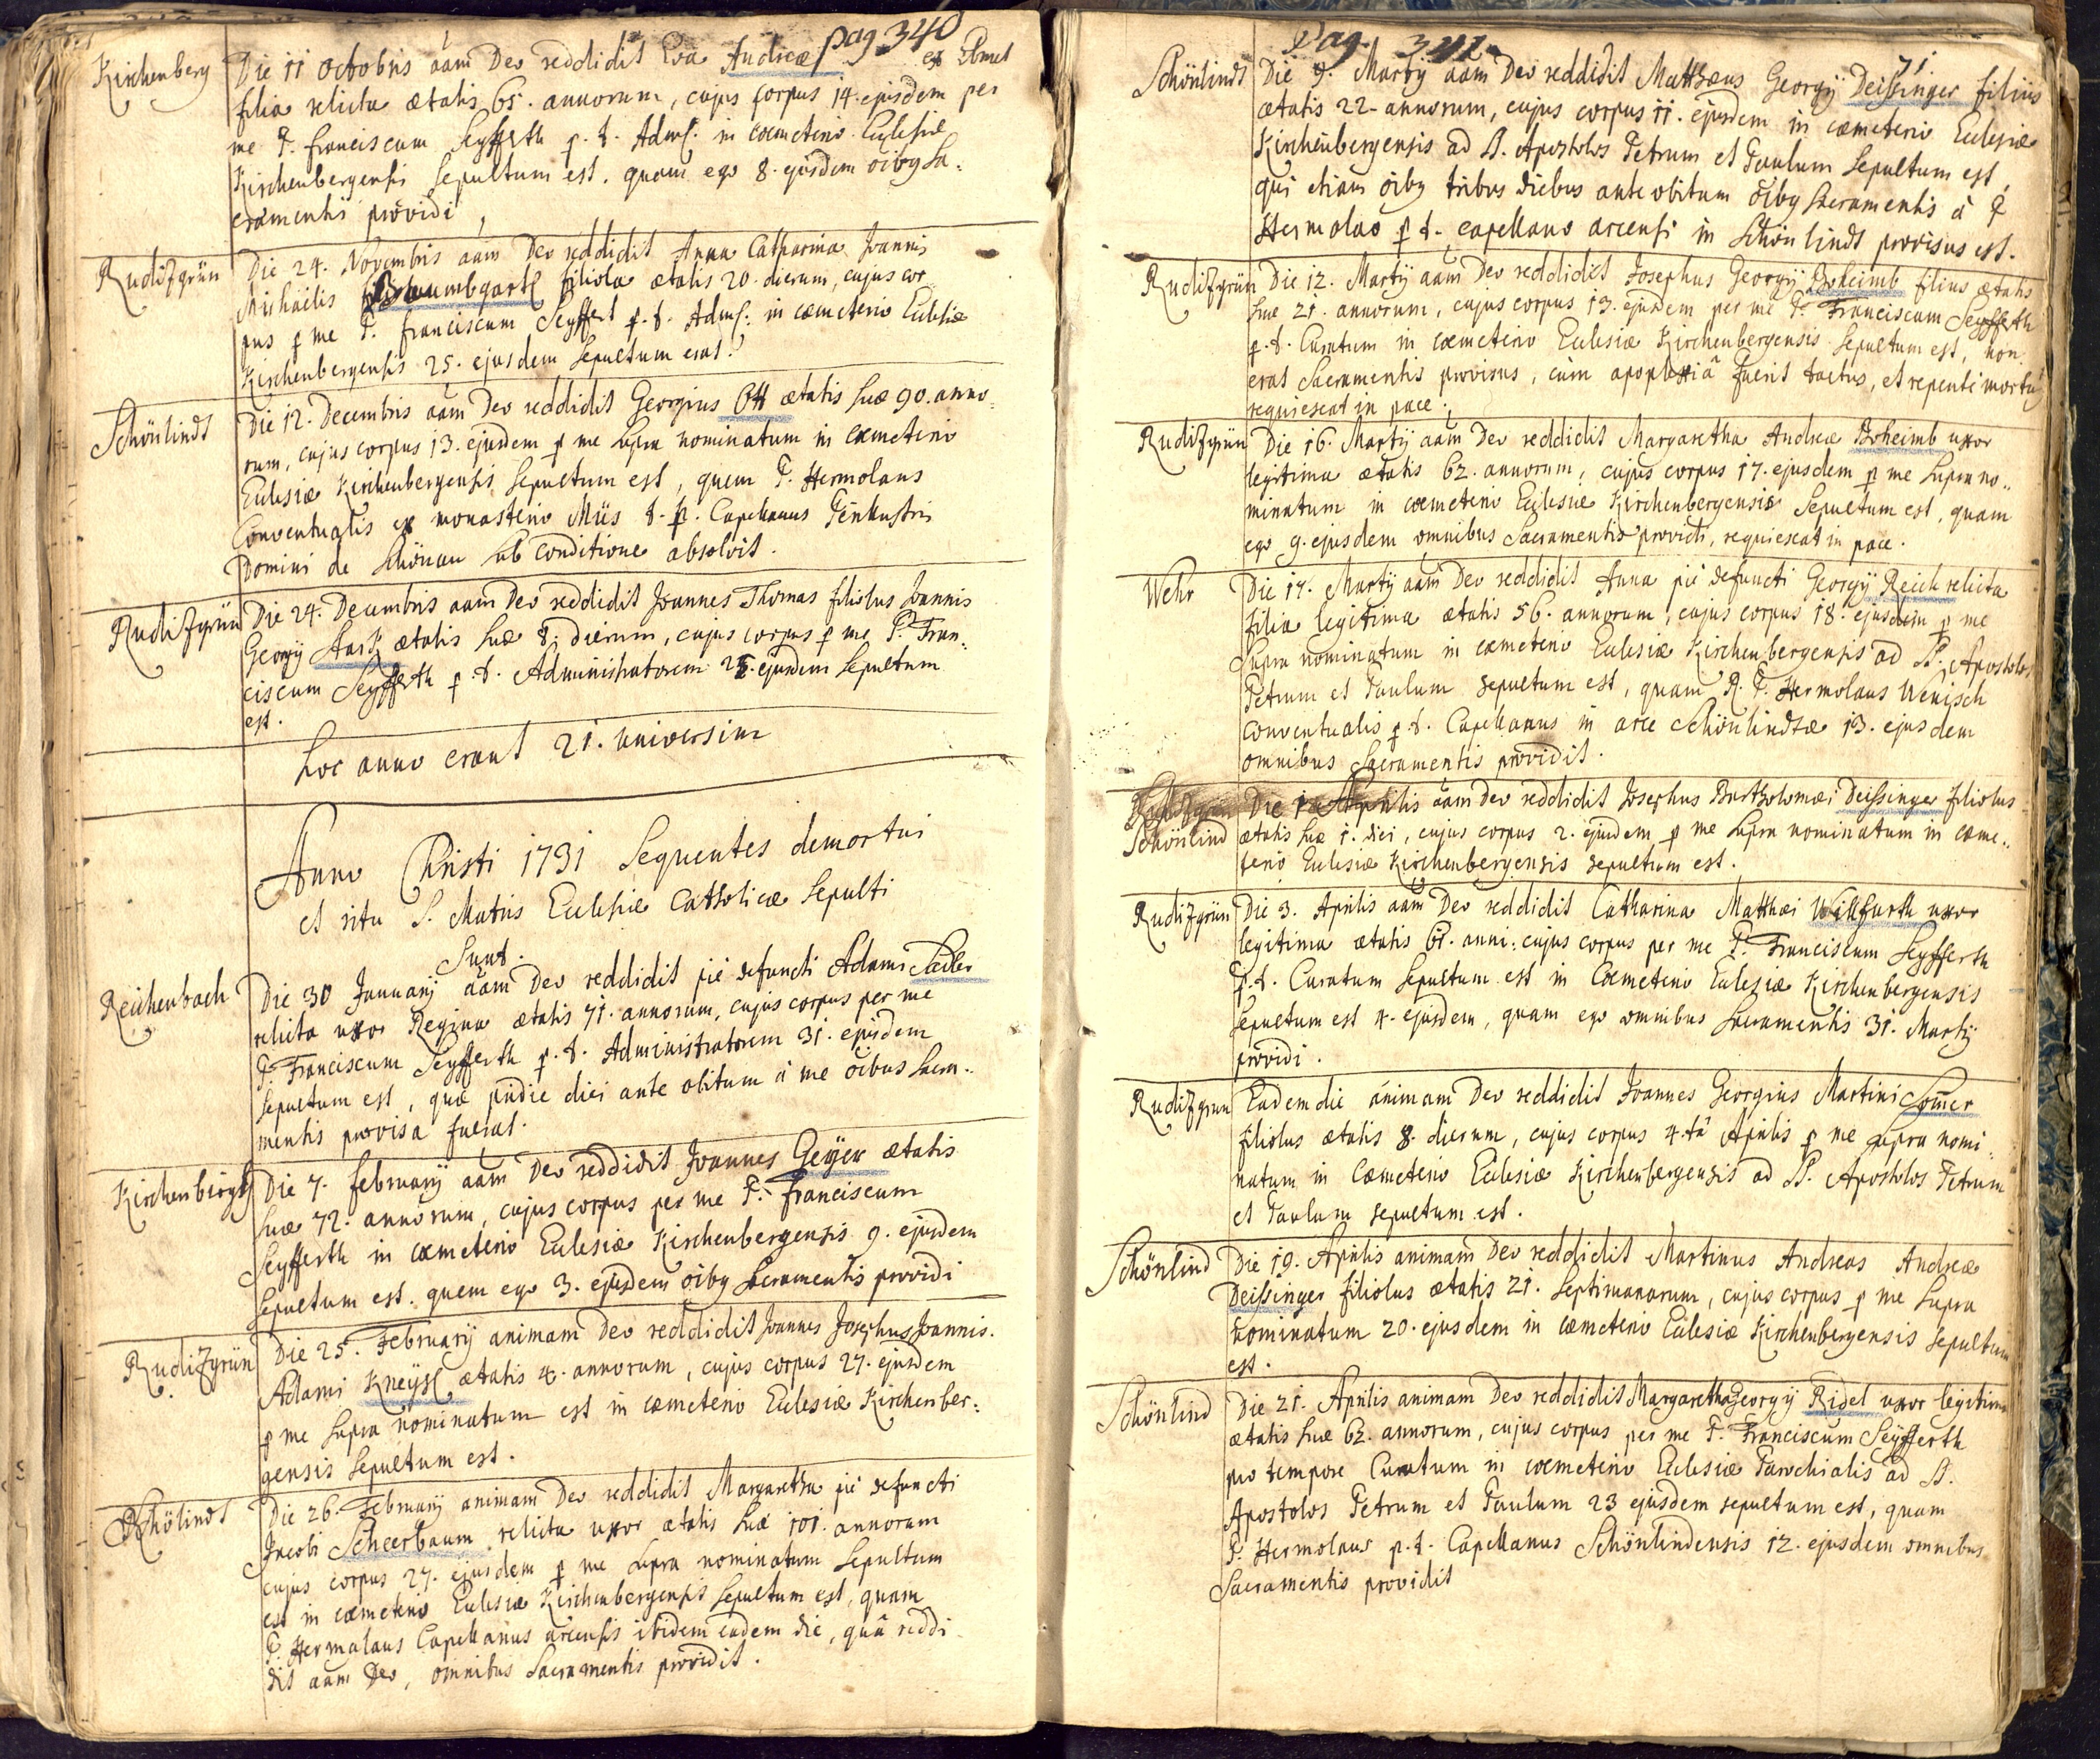 pag 340
Kirchenberg Die 11 Octobris aam Deo reddidit Eva Andreæ ex
filia relicta ætatis 65. annorum, cujus corpus 14. ejusdem per
me P. Franciscum Seyfferth p. t. Adms. in cæmeterio Eclesiæ
Kirchenbergensi Sepultum est. quam ego 8. ejusdem oibus Sa:
cramentis providi
Rudißgrün Die 24. Novembris aam Deo reddidit Anna Catharina Joannis
Michaelis Braumbgartl filiola ætatis 20. dierum, cujus cor
pus p me P. Franciscum Seyffert p. t. Adms: in cæmeterio Eclesiæ
Kirchenbergensis 25. ejusdem Sepultum erat.
Schönlindt Die 12. Decembris aam Deo reddidit Georgius Ott ætatis suæ 90. anno:
rum, cujus corpus 13. ejusdem p me supra nominatum in cæmeterio
Eclesiæ Kirchenbergensis Sepultum est, quem P. Hermolaus
Conventualis ex monasterio Miis t. p. Capellanus Perillustris
Domini de Schönau sub conditione absolvit.
Rudißgrün Die 24. Decembris aam Deo reddidit Joannes Thomas filiolus Joannis
Georgy ætatis suæ 8. dierum, cujus corpus p me P. Fran:
ciscum Seyfferth p. t. Administratorem 25. ejusdem Sepultum
est.
hoc anno erant 21. universim
Anno Christi 1731 Sequentes demortui
et ritu S. Matris Eclesiæ Catholicæ Sepulti
Sunt.
Reichenbach Die 30 January aam Deo reddidit pie defuncti Adami Sadler
relicta uxor Regina ætatis 71. annorum, cujus corpus per me
P. Franciscum Seyfferth p. t. Administratorem 31. ejusdem
Sepultum est, quæ pridie diei ante obitum à me oibus Sacra..
mentis provisa fuerat.
Kirchenbirg Die 7. february aam Deo reddidit Joannes Geyer ætatis
suæ 72. annorum, cujus corpus per me P. Franciscum
Seyfferth in cæmeterio Eclesiæ Kirchenbergensis 9. ejusdem
Sepultum est. quem ego 3. ejusdem oibus Sacramentis providi
Rudißgrün Die 25. February animam Deo reddidit Joannes Josephus Joannis.
Adami Kneyßl ætatis 4. annorum, cujus corpus 27. ejusdem
p me supra nominatum est in cæmeterio Eclesiæ Kirchenber:
gensis Sepultum est.
Schölindt Die 26. February animam Deo reddidit Margaretha pie defuncti
Jacobi Scheerbaum relicta uxor ætatis suæ 101. annorum
cujus corpus 27. ejusdem p me supra nominatum Sepultum
est in cæmeterio Eclesiæ Kirchenbergensis Sepultum est, quam
P. Hermalaus Capellanus arcensis ibidem eadem die, quâ reddi
dit aam Deo, omnibus Sacramentis providit.
Pag. 341
71
Schönlindt Die 9. Marty aam Deo reddidit Matthæus Georgy Deißinger filius
ætatis 22. annorum, cujus corpus 11. ejusdem in cæmeterio Eclesiæ
Kirchenbergensis ad SS. Apostolos Petrum et Paulum Sepultum est,
qui etiam oibus tribus diebus ante obitum oibus Sacramentis à P
Hermolao p. t. capellano arcensi in Schönlindt provisus est.
Rudißgrün Die 12. Marty aam Deo reddidit Josephus Georgy Boheimb filius ætatis
suæ 21. annorum, cujus corpus 13. ejusdem per me P. Franciscum Seyfferth
p. t. Curatum in cæmeterio Eclesiæ Kirchenbergensis Sepultum est, non
erat Sacramentis provisus, cùm apoplexiâ fuerit tactus, et repente mortuus
requiescat in pace.
Rudißgrün Die 16. Marty aam Deo reddidit Margaretha Andreæ Boheimb uxor
legitima ætatis 62. annorum, cujus corpus 17. ejusdem p me supra no..
minatum in cæmeterio Eclesiæ Kirchenbergensis Sepultum est, quam
ego 9. ejusdem omnibus Sacramentis providi, requiescat in pace.
Wehr Die 17. Marty aam Deo reddidit Anna piè defuncti Georgy Reich relicta
filia legitima ætatis 56. annorum, cujus corpus 18. ejusdem p me
Supra nominatum in cæmeterio Eclesiæ Kirchenbergensis ad SS. Apostolos
Petrum et Paulum Sepultum est, quam R. P. Hermolaus Wenisch
conventualis p. t. Capellanus in arce Schönlindtæ 13. ejusdem
omnibus Sacramentis providit.
Rudißgrün Die 1. Aprilis aam Deo reddidit Josephus Bartholomæi Deißinger filiolus
Schönlind ætatis suæ 1. diei, cujus corpus 2. ejusdem p me supra nominatum in cæme..
terio Eclesiæ Kirchenbergensis sepultum est.
Rudißgrün Die 3. Aprilis aam Deo reddidit Catharina Matthæi Willfurth uxor
legitima ætatis 61. anni: cujus corpus per me P. Franciscum Seyfferth
p. t. Curatum Sepultum est in Cæmeterio Eclesiæ Kirchenbergensis
Sepultum est 4. ejusdem, quam ego omnibus Sacramentis 31. Marty
providi.
Rudißgrun Eadem die animam Deo reddidit Joannes Georgius Martini Somer
filiolus ætatis 8. dierum, cujus corpus 4.tâ Aprilis p me supra nomi:
natum in Cæmeterio Eclesiæ Kirchenbergensis ad SS. Apostolos Petrum
et Paulum sepultum est.
Schönlind Die 19. Aprilis animam Deo reddidit Martinus Andreas Andreæ
Deißinger filiolus ætatis 21. Septimanarum, cujus corpus p me supra
nominatum 20. ejusdem in cæmeterio Eclesiæ Kirchenbergensis Sepultum
est.
Schönlind Die 21. Aprilis animam Deo reddidit Margaretha Georgy Ridel uxor legitima
ætatis suæ 62. annorum, cujus corpus per me P. Franciscum Seyfferth
pro tempore Curatum in cæmeterio Eclesiæ Parochialis ad SS.
Apostolos Petrum et Paulum 23 ejusdem sepultum est, quam
P. Hermolaus p. t. Capellanus Schönlindensis 12. ejusdem omnibus
Sacramentis providit